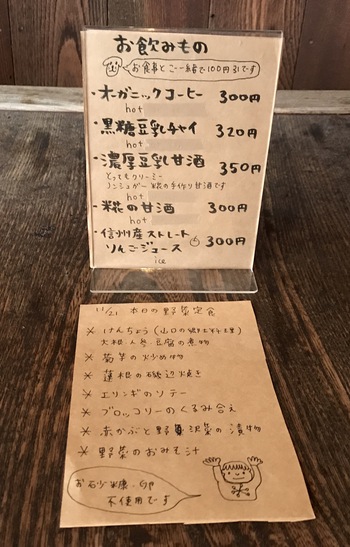 お飲みもの
お食事とご一緒で100円引です
・オーガニックコーヒー 300円
hot
・黒糖豆乳チャイ 320円
hot
・濃厚豆乳甘酒 350円
とってもクリーミー
ノンシュガー 糀の手作り甘酒です
hot
・糀の甘酒 300円
hot
・信州産ストレート
りんごジュース 300円
ice
11/21 本日の野菜定食
* けんちょう(山口の郷土料理)
大根人参豆腐の煮物
* 菊芋の炒め物
* 蓮根の磯辺焼き
* エリンギのソテー
* ブロッコリーのくるみ合え
* 赤かぶと野沢菜の漬物
* 野菜のおみそ汁
お砂糖・卵
不使用です